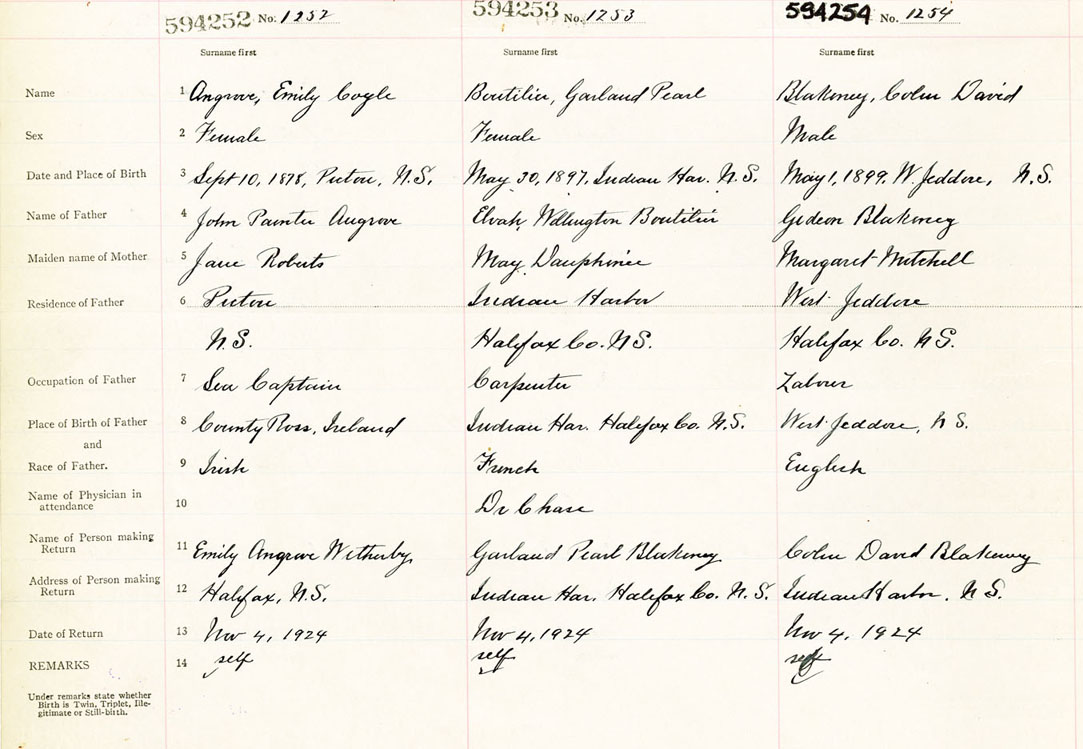 594252 No. 1252 594253 No. 1253 594254 No. 1254
Surname first Surname first Surname first
Name 1 Angrove, Emily Coyle Boutilier, Garland Pearl Blakeney, Colin David
Sex 2 Female Female Male
Date and Place of Birth 3 Sept 10, 1878, Pictou, N.S. May 20, 1897, Indian Har. N.S. May 1, 1899, W. Jeddore, N.S.
Name of Father 4 John Painter Angrove Wellington Boutilier Gideon Blakeney
Maiden name of Mother 5 Jane Roberts May Dauphinee Margaret Mitchell
Residence of Father 6 Pictou Indian Harbor West Jeddore
N.S. Halifax Co. N.S. Halifax Co. N.S.
Occupation of Father 7 Sea Captain Carpenter Labour
Place of Birth of Father 8 County Ross, Ireland Indian Har. Halifax Co. N.S. West Jeddore, N.S.
and
Race of Father. 9 Irish French English
Name of Physician in
attendance 10 Dr Chase
Name of Person making
Return 11 Emily Angrove Wetherby Garland Pearl Blakeney Colin David Blakeney
Address of Person making
Return 12 Halifax, N.S. Indian Har. Halifax Co. N.S. Indian Harbor, N.S.
Date of Return 13 Nov 4, 1924 Nov 4, 1924 Nov 4, 1924
REMARKS 14 self self self
Under remarks state whether
Birth is Twin, Triplet, Ille-
gitimate or Still-birth.